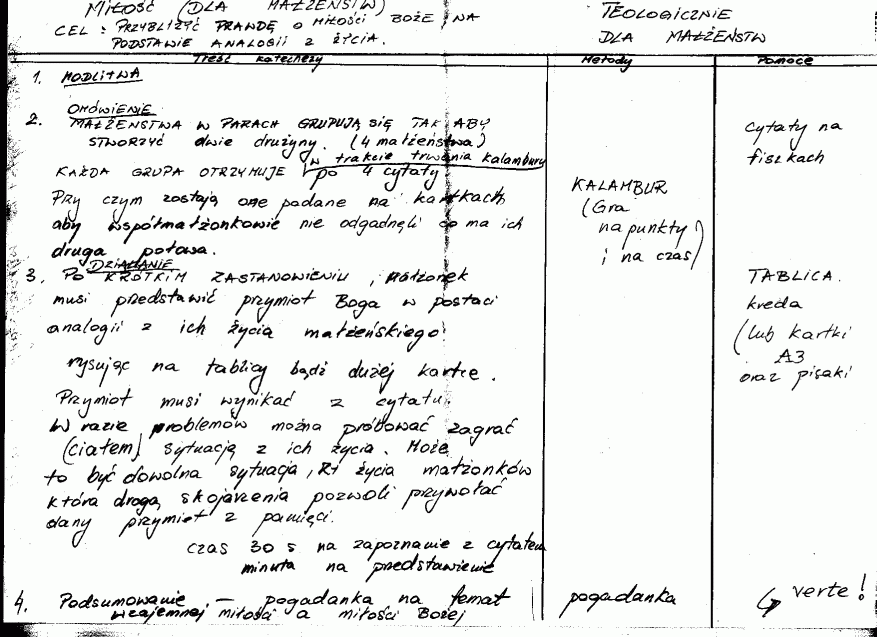 MIŁOŚĆ (DLA MAŁŻEŃSTW)
CEL : PRZYBLIŻYĆ PRAWDĘ O MIŁOŚCI BOŻEJ NA
PODSTAWIE ANALOGII Z ŻYCIA.
TEOLOGICZNIE
DLA MAŁŻEŃSTW
Treść katechezy Metody Pomoce
1. MODLITWA
OMÓWIENIE
2. MAŁŻEŃSTWA W PARACH GRUPUJĄ SIĘ TAK ABY
STWORZYĆ dwie drużyny. (4 małżeństwa)
w trakcie trwania kalambury
KAŻDA GRUPA OTRZYMUJE po 4 cytaty
Przy czym zostają one podane na kartkach,
aby współmałżonkowie nie odgadnęli co ma ich
druga połowa.
DZIAŁANIE
3. PO KRÓTKIM ZASTANOWIENIU, małżonek
musi przedstawić przymiot Boga w postaci
analogii z ich życia małżeńskiego!
rysując na tablicy bądź dużej kartce.
Przymiot musi wynikać z cytatu.
W razie problemów można próbować zagrać
(ciałem) sytuację z ich życia. Może
to być dowolna sytuacja, życia małżonków
która drogą skojarzenia pozwoli przywołać
dany przymiot z pamięci.
czas 30 s na zapoznanie z cytatem
minuta na przedstawienie
4. Podsumowanie – pogadanka na temat
wzajemnej miłości a miłości Bożej
KALAMBUR
(Gra
na punkty
i na czas)
pogadanka
cytaty na
fiszkach
TABLICA.
kreda
(lub kartki
A3
oraz pisaki
↪ verte!